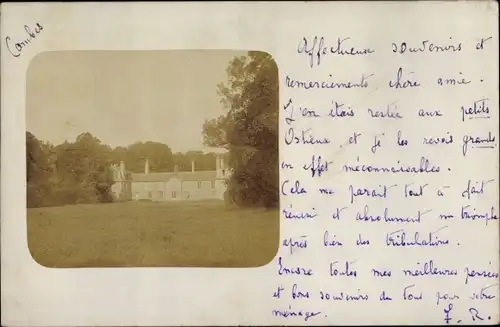 Combes
Affectueux souvenirs et
remerciements chère amie.
J'en étais restée aux petits
et je les revois grands
en effet méconnaissables.
Cela me parait tout à fait
réussi et absolument un triomphe
après bien des tribulations.
Encore toutes mes meilleures pensées
et bons souvenirs de tous pour votre
ménage. F. R.